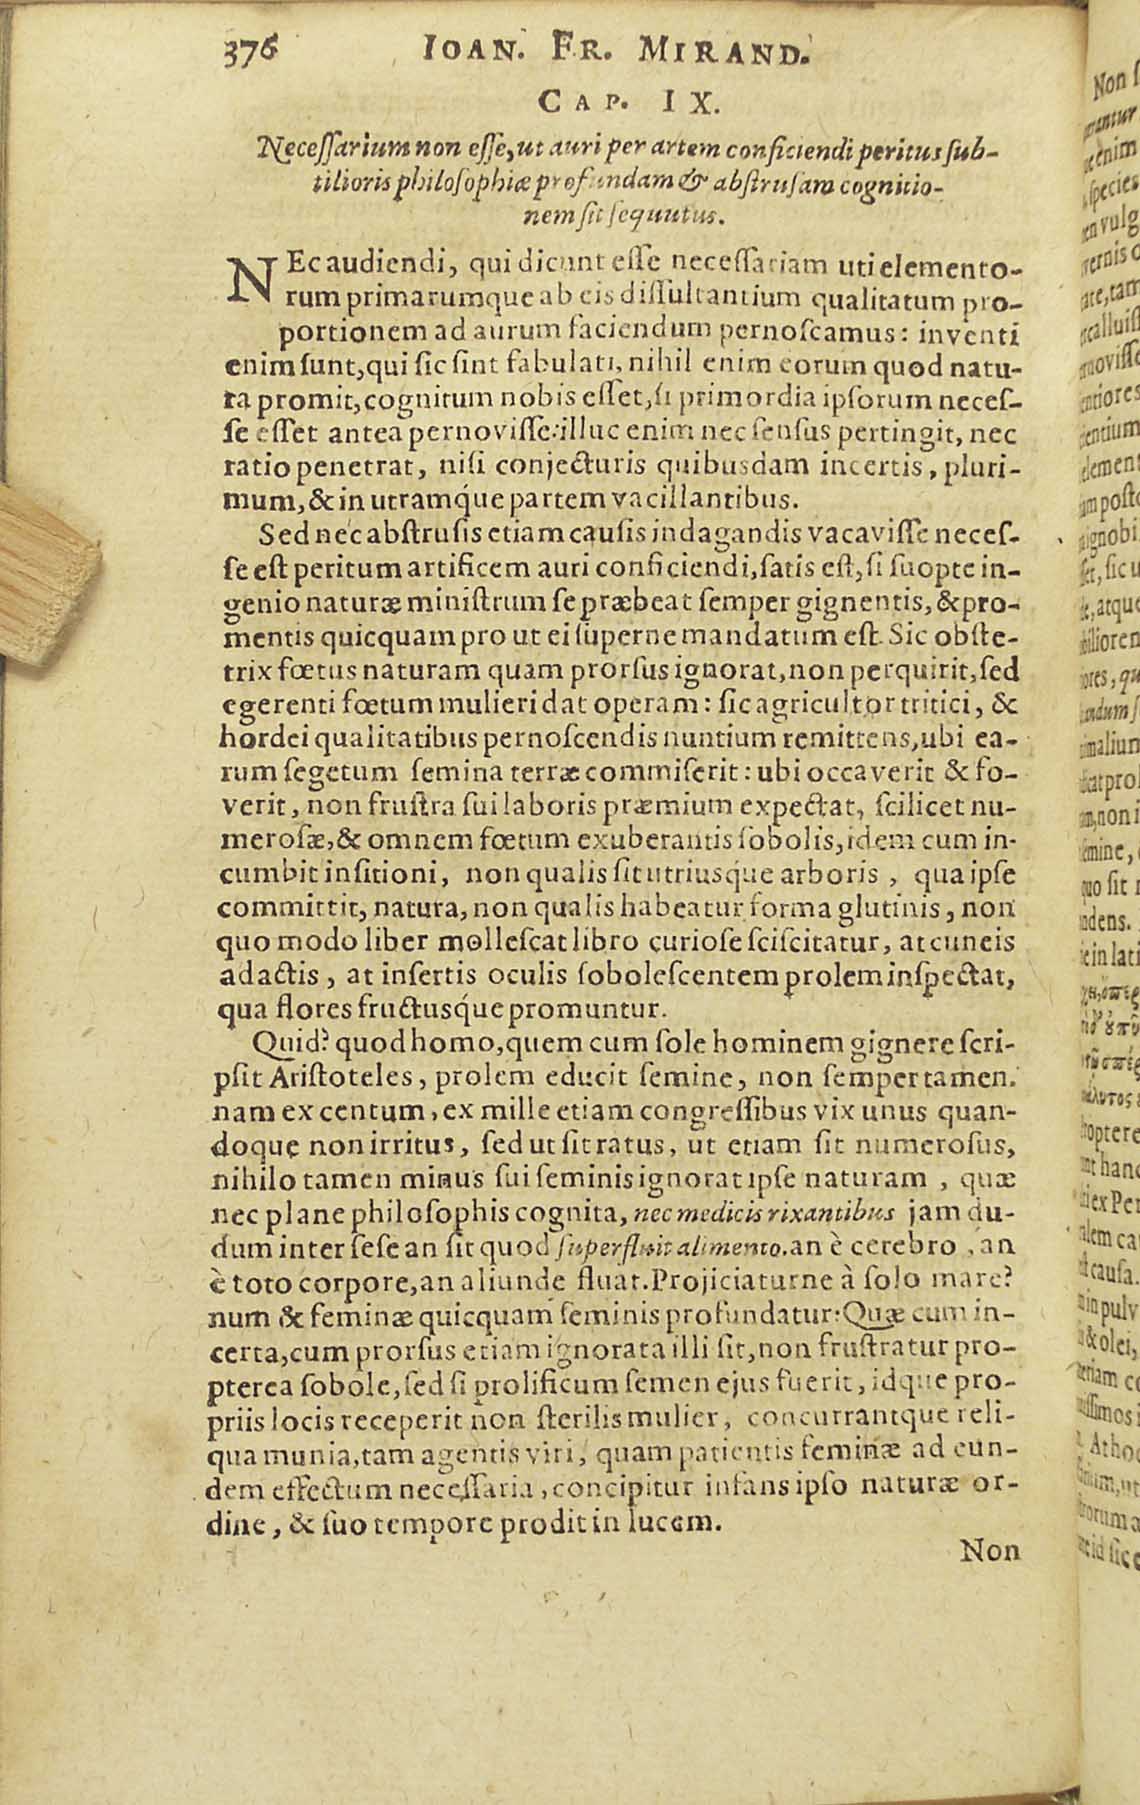 376 IOAN. FR. MIRAND.
CAP. IX.
Necessarium non esse, ut auri per artem conficiendi peritus sub-
tilioris philosophiæ profundam & abstrusam cognitio-
nem sit sequutus.
NEc audiendi, qui dicunt esse necessariam uti elemento-
rum primarumque ab eis dissultantium qualitatum pro-
portionem ad aurum faciendum pernoscamus: inventi
enim sunt, qui sic sint fabulati, nihil enim eorum quod natu-
ra promit, cognitum nobis esset, si primordia ipsorum neces-
se esset antea pernovisse: illuc enim nec sensus pertingit, nec
ratio penetrat, nisi conjecturis quibusdam incertis, pluri-
mum, & in utramq́ue partem vacillantibus.
Sed nec abstrusis etiam causis indagandis vacavisse neces-
se est peritum artificem auri conficiendi, satis est, si suopte in-
genio naturæ ministrum se præbeat semper gignentis, & pro-
mentis quicquam pro ut ei superne mandatum est. Sic obste-
trix fœtus naturam quam prorsus ignorat, non perquirit, sed
egerenti fœtum mulieri dat operam: sic agricultor tritici, &
hordei qualitatibus pernoscendis nuntium remittens, ubi ea-
rum segetum semina terræ commiserit: ubi occaverit & fo-
verit, non frustra sui laboris præmium expectat, scilicet nu-
merosæ, & omnem fœtum exuberantis sobolis, idem cum in-
cumbit insitioni, non qualis sit utriusq́ue arboris, qua ipse
committit, natura, non qualis habeatur forma glutinis, non
quo modo liber mollescat libro curiose sciscitatur, at cuneis
adactis, at insertis oculis sobolescentem prolem inspectat,
qua flores fructusq́ue promuntur.
Quid? quod homo, quem cum sole hominem gignere scri-
psit Aristoteles, prolem educit semine, non semper tamen.
nam ex centum, ex mille etiam congressibus vix unus quan-
doque non irritus, sed ut sit ratus, ut etiam sit numerosus,
nihilo tamen minus sui seminis ignorat ipse naturam, quæ
nec plane philosophis cognita, nec medicis rixantibus jam du-
dum inter sese an sit quod superfluit alimento. an è cerebro, an
è toto corpore, an aliunde fluat. Projiciaturne à solo mare?
num & feminæ quicquam seminis profundatur: Quæ cum in-
certa, cum prorsus etiam ignorata illi sit, non frustratur pro-
pterea sobole, sed si prolificum semen ejus fuerit, idque pro-
priis locis receperit non sterilis mulier, concurrantque reli-
qua munia, tam agentis viri, quam patientis feminæ ad eun-
dem effectum necessaria, concipitur infans ipso naturæ or-
dine, & suo tempore prodit in lucem.
Non